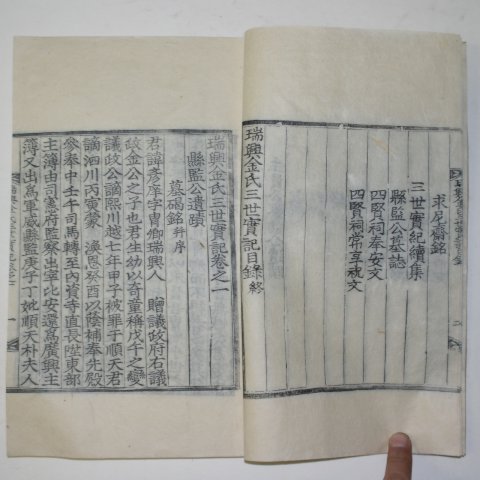 求尼齋銘
三世實紀續集
縣監公墓誌
四賢祠奉安文
四賢祠常享祝文
瑞興金氏三世實記目錄終
瑞興金氏三世實記卷之一
縣監公遺蹟
墓碣銘 幷序
君諱彦庠字胄卿瑞興人 贈議政府右議
政金公之子也君生幼以奇童稱戊午之變
議政公謫熙川越七年甲子被罪于順天君
謫泗川丙寅蒙 漁恩癸酉以蔭補奉先殿
參奉中壬午司馬轉至內資寺直長陞東部
主簿由司憲府監察出宰比安還爲廣興主
簿又出爲軍威縣監庚午丁妣順天朴夫人